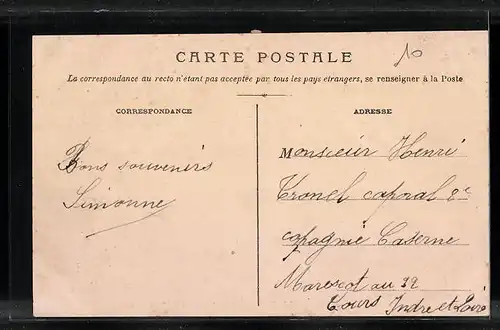 CARTE POSTALE
10
La correspondance au recto n'étant pas acceptée par tous les pays étrangers, se renseigner à la Poste
CORRESPONDANCE
Bons souvenirs
Simonne
ADRESSE
Monsieur Henri
Tronel caporal 8e
copagnie Caserne
Marescot au 32
Tours Indre et Loire